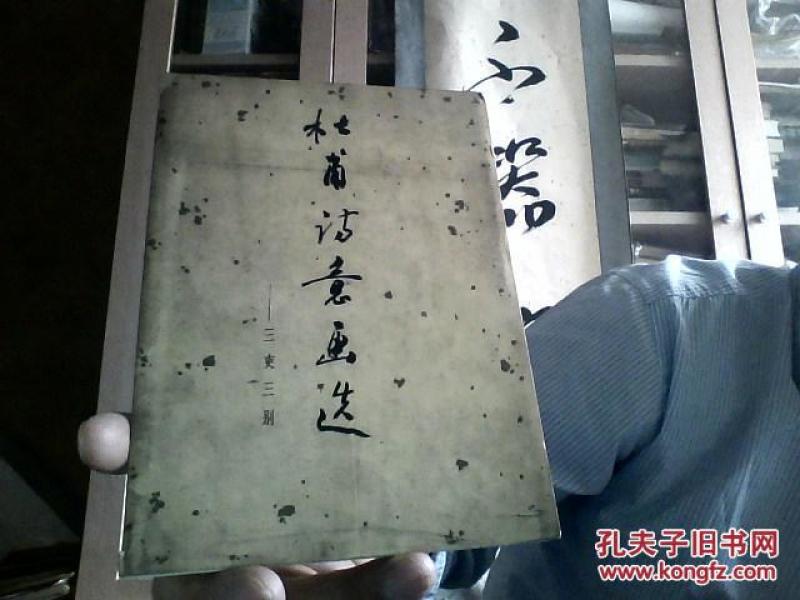 杜甫诗意画选
——三吏三别
不器
孔夫子旧书网
www.kongfz.com